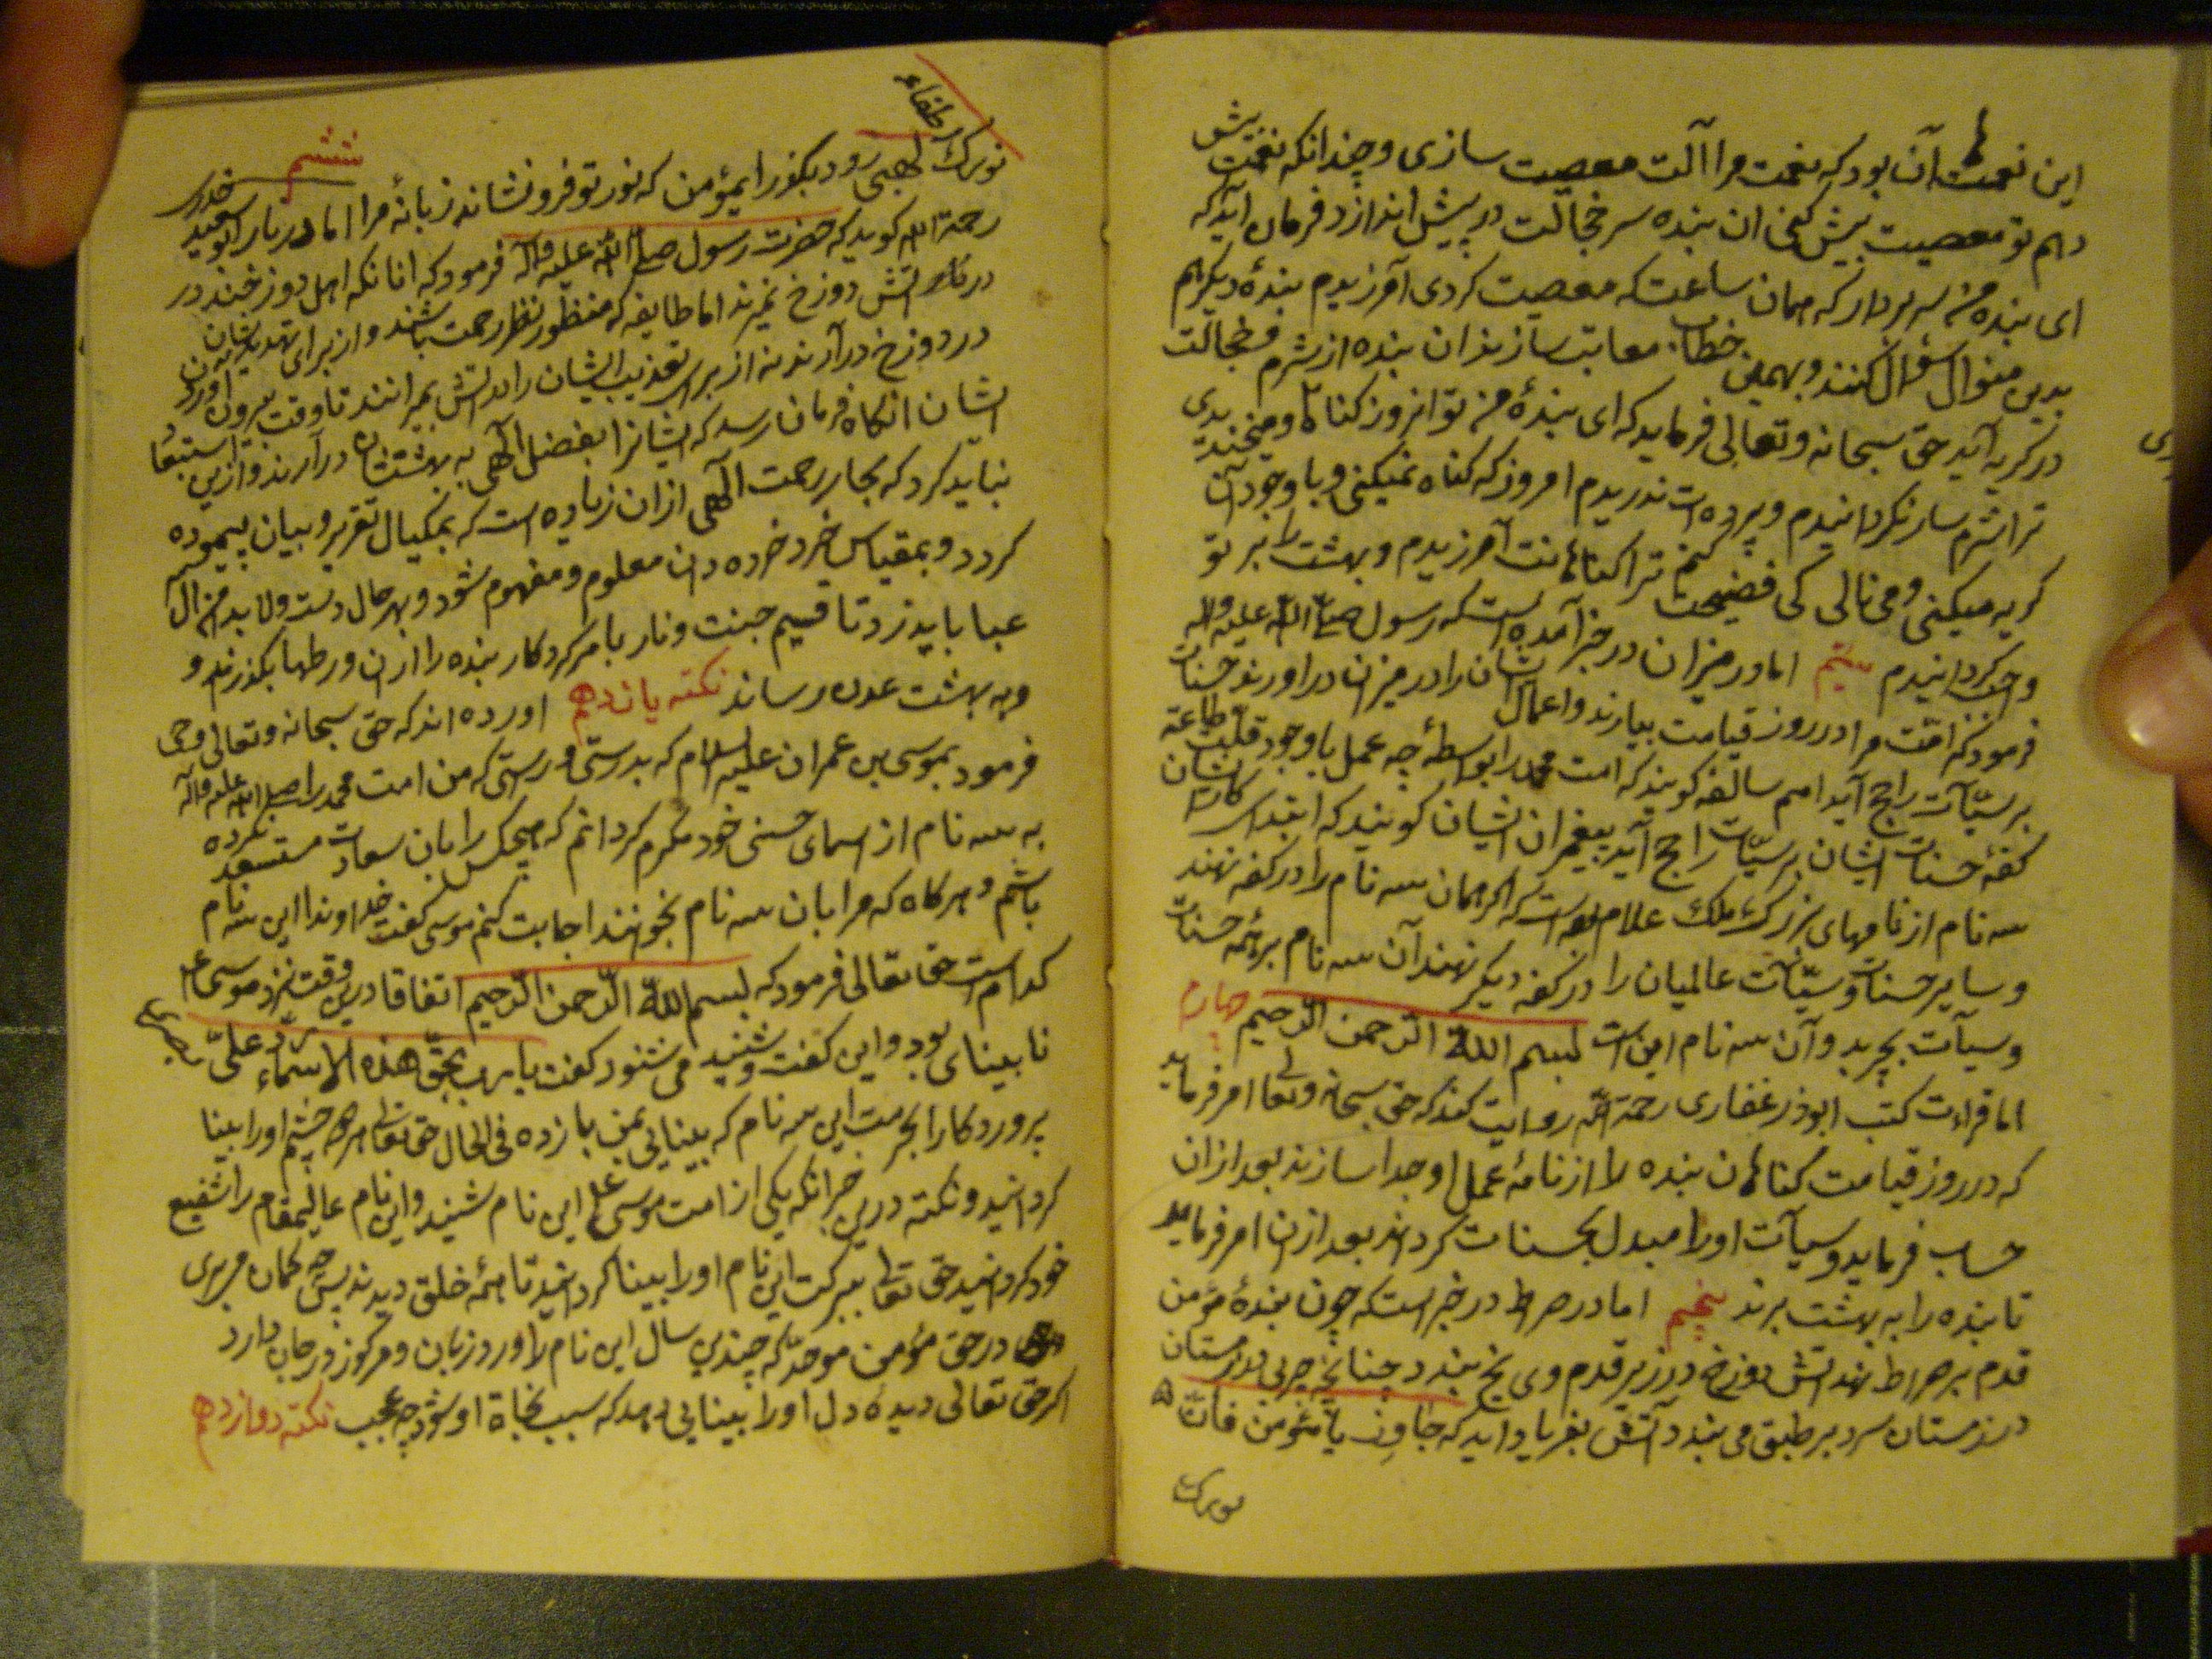 این نعمت آن بود که نعمت مرا آلت معصیت سازی و چندانکه نعمت بیش
دهم تو معصیت بیش کنی ان بنده سر خجالت در پیش اندازد فرمان آید که
ای بنده من سر بردار که همان ساعت که معصیت کردی آمرزیدم بندهٔ دیگر هم
بدین منوال سؤال کنند و بهمین خطاب معاتب سازند ان بنده از شرم و خجالت
در گریه آید حق سبحانه و تعالی فرماید که ای بندهٔ من تو انروز گناه و میخندیدی
ترا شرمسار نگردانیدم و پرده ات ندریدم امروز که گناه نمیکنی و با وجود آن
گریه میکنی و می نالی کی فضیحت کنم ترا گناهانت آمرزیدم و بهشت را بر تو
واجب گردانیدم سیّم اما در میزان در خبر آمده است که رسول صلّی اللّه علیه واله
فرمود که امّت مرا در روز قیامت بیارند و اعمال ایشان را در میزان در اورند حسنات
بر سیّآت راجح آید امم سالفه گویند که امت محمد را بواسطهٔ چه عمل با وجود قلّت طاعت
کفهٔ حسنات ایشان بر سیّات راجح آید پیغمبران ایشان گویند که ابتداء کلام ایشان
سه نام از نامهای بزرگ ملک علام بوده است که اگر همان سه نام را در کفه نهند
و سایر حسنات و سیّآت عالمیان را در کفه دیگر نهند آن سه نام بر همه حسنات
و سیآت بچربد و آن سه نام این است بسم اللّه الرّحمن الرّحیم چهارم
اما قراءت کتب ابوذر غفاری رحمة اللّه روایت کند که حق سبحانه و تعالی امر فرماید
که در روز قیامت گناهان بنده را از نامهٔ عمل او جدا سازند بعد از ان
حساب فرماید و سیآت او را مبدل بحسنات گرداند بعد از ان امر فرماید
تا بنده را به بهشت برند پنجم اما در صراط در خبر است که چون بندهٔ مؤمن
قدم بر صراط نهد اتش دوزخ در زیر قدم وی یخ بندد چنانچه چربی در زمستان
در زمستان سرد بر طبق می بندد آتش بفریاد اید که جاوز یا مؤمن فانّ
نورک
نورک اطفاء
لهبی زود بگذر ای مؤمن که نور تو فرو نشاند زبانهٔ مرا ششم اما در نار ابو سعید خدری
رحمة اللّه گوید که حضرت رسول صلی اللّه علیه وآله فرمود که انانکه اهل دوزخند در
درک اتش دوزخ نمیرند اما طایفه که منظور نظر رحمت باشند و از برای تهدید ایشان
در دوزخ در آرند نه از برای تعذیب ایشان را در اتش بمیرانند تا وقت بیرون اوردن
ایشان انگاه فرمان رسد که ایشانرا بفضل الهی به بهشت در آرند و از این استبعاد
نباید کرد که بحار رحمت الهی از ان زیاده است که بمکیال تقریر و بیان پیموده
گردد و بمقیاس خرد خرده دان معلوم و مفهوم شود و بهر حال دست ولا بدامن آل
عبا باید زد تا قسیم جنت و نار بامر کردکار بنده را از ان ورطها بگذرند و
و به بهشت عدن رساند نکته یازدهم اورده اند که حق سبحانه و تعالی وحی
فرمود بموسی بن عمران علیه السلام که بدرستی و راستی که من امت محمد را صلی الله علیه وآله
به سه نام از اسمای حسنی خود مکرم گردانم که هیچکس را بان سعادت مستسعد نکرده
باشم و هرگاه که مرا بان سه نام بخوانند اجابت کنم موسی گفت خداوندا این سه نام
کدام است حق تعالی فرمود که بسم اللّه الرّحمن الرّحیم اتفاقا درین وقت نزد موسی ع
نابینای بود و این گفت و شنید می شنود گفت یا رب بحقّ هذه الاسماء ردّ علیّ بصری
پروردگارا بحرمت این سه نام که بینایی بمن باز ده فی الحال حق تعالی هر دو چشم او را بینا
گردانید و نکته درین خبر انکه یکی از امت موسی ع این نام شنید و این نام عالیمقام را شفیع
خود گردانید حق تعالی ببرکت این نام او را بینا گردانید تا همهٔ خلق دیدند پس چه گمان میبری
در حق مؤمن موحد که چندین سال این نام را ورد زبان و مرکوز در جان دارد
اگر حق تعالی دیدهٔ دل او را بینایی دهد که سبب نجاة او شود چه عجب نکته دوازدهم